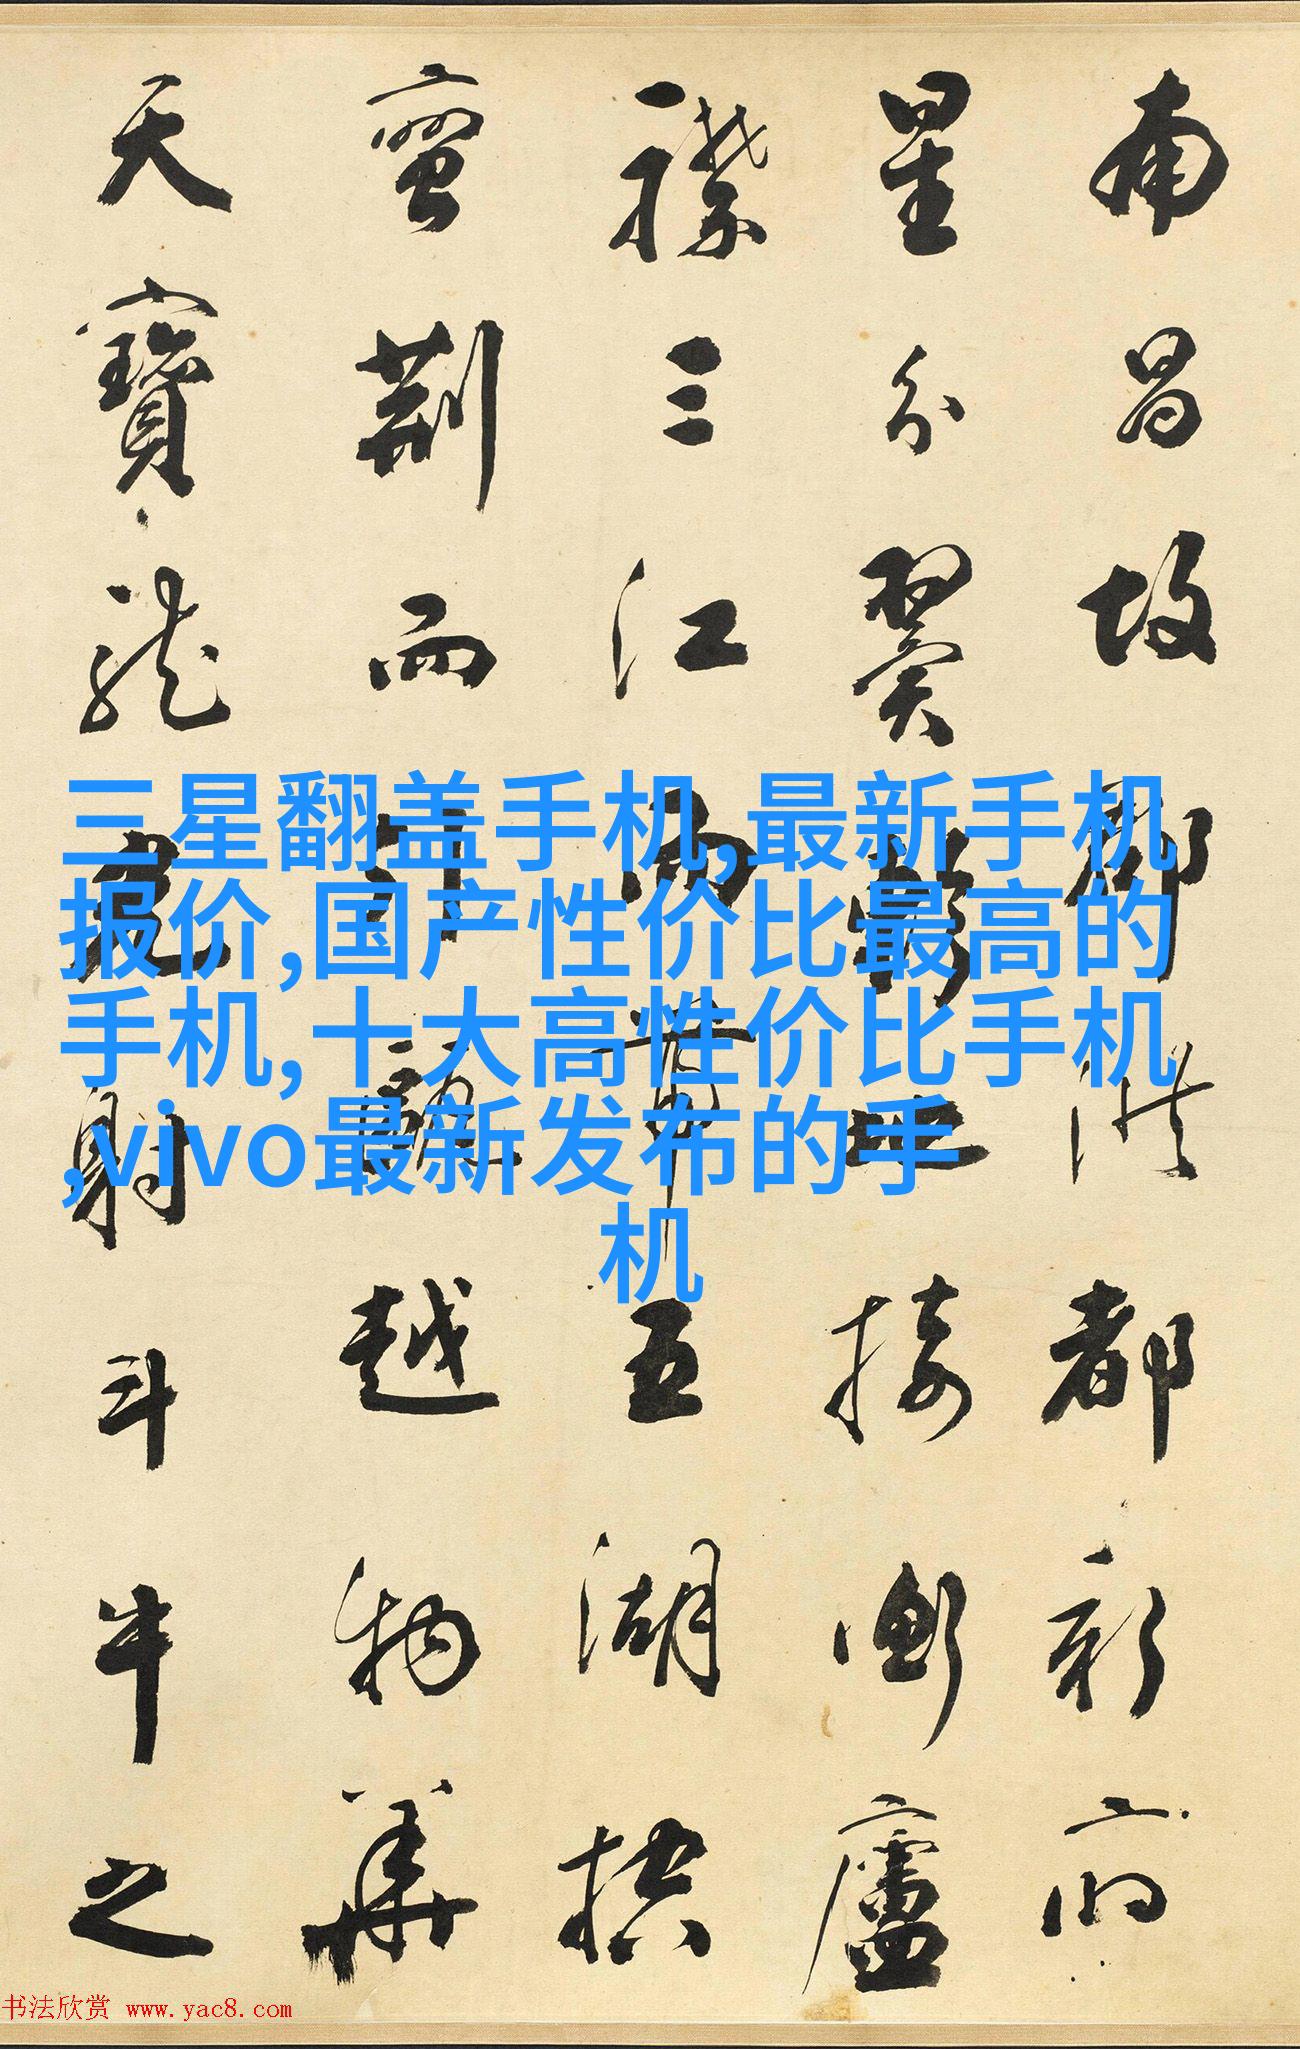 南昌故郡洪都新府
星分翼軫地接衡廬
襟三江而帶五湖控
蠻荊而引甌越物華
天寶龍光射斗牛之
三星翻盖手机,最新手机
报价,国产性价比最高的
手机,十大高性价比手机
,vivo最新发布的手
机
书法欣赏 www.yac8.com